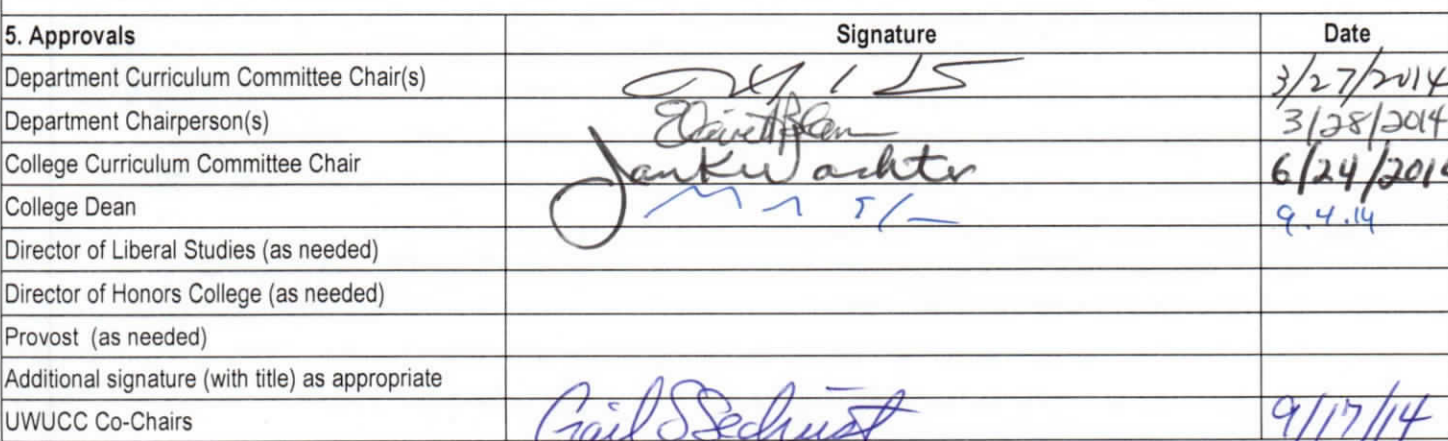 5. Approvals Signature Date
Department Curriculum Committee Chair(s) 3/27/2014
Department Chairperson(s) 3/28/2014
College Curriculum Committee Chair Jan K Wachter 6/24/2014
College Dean 9.4.14
Director of Liberal Studies (as needed)
Director of Honors College (as needed)
Provost (as needed)
Additional signature (with title) as appropriate
UWUCC Co-Chairs Gail S Sechrist 9/17/14